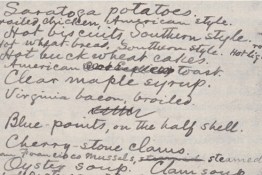 Saratoga potatoes.
Broiled chicken, American style.
Hot biscuits, Southern style.
Hot wheat-bread, Southern style. Hot lig
Hot buckwheat cakes.
American toast.
Clear maple syrup.
Virginia bacon, broiled.
Blue-points, on the half shell.
Cherry-stone clams.
San Francisco mussels, steamed
Oyster soup. Clam soup